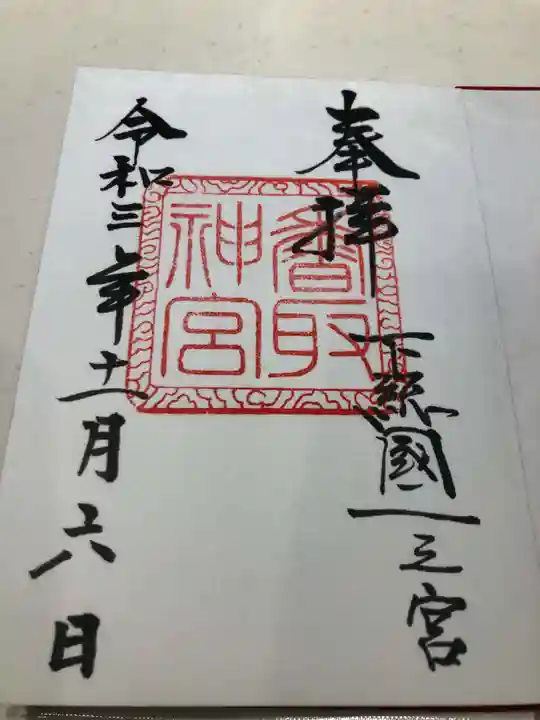 奉拝
下総國一之宮
香取
神宮
令和三年十一月六日